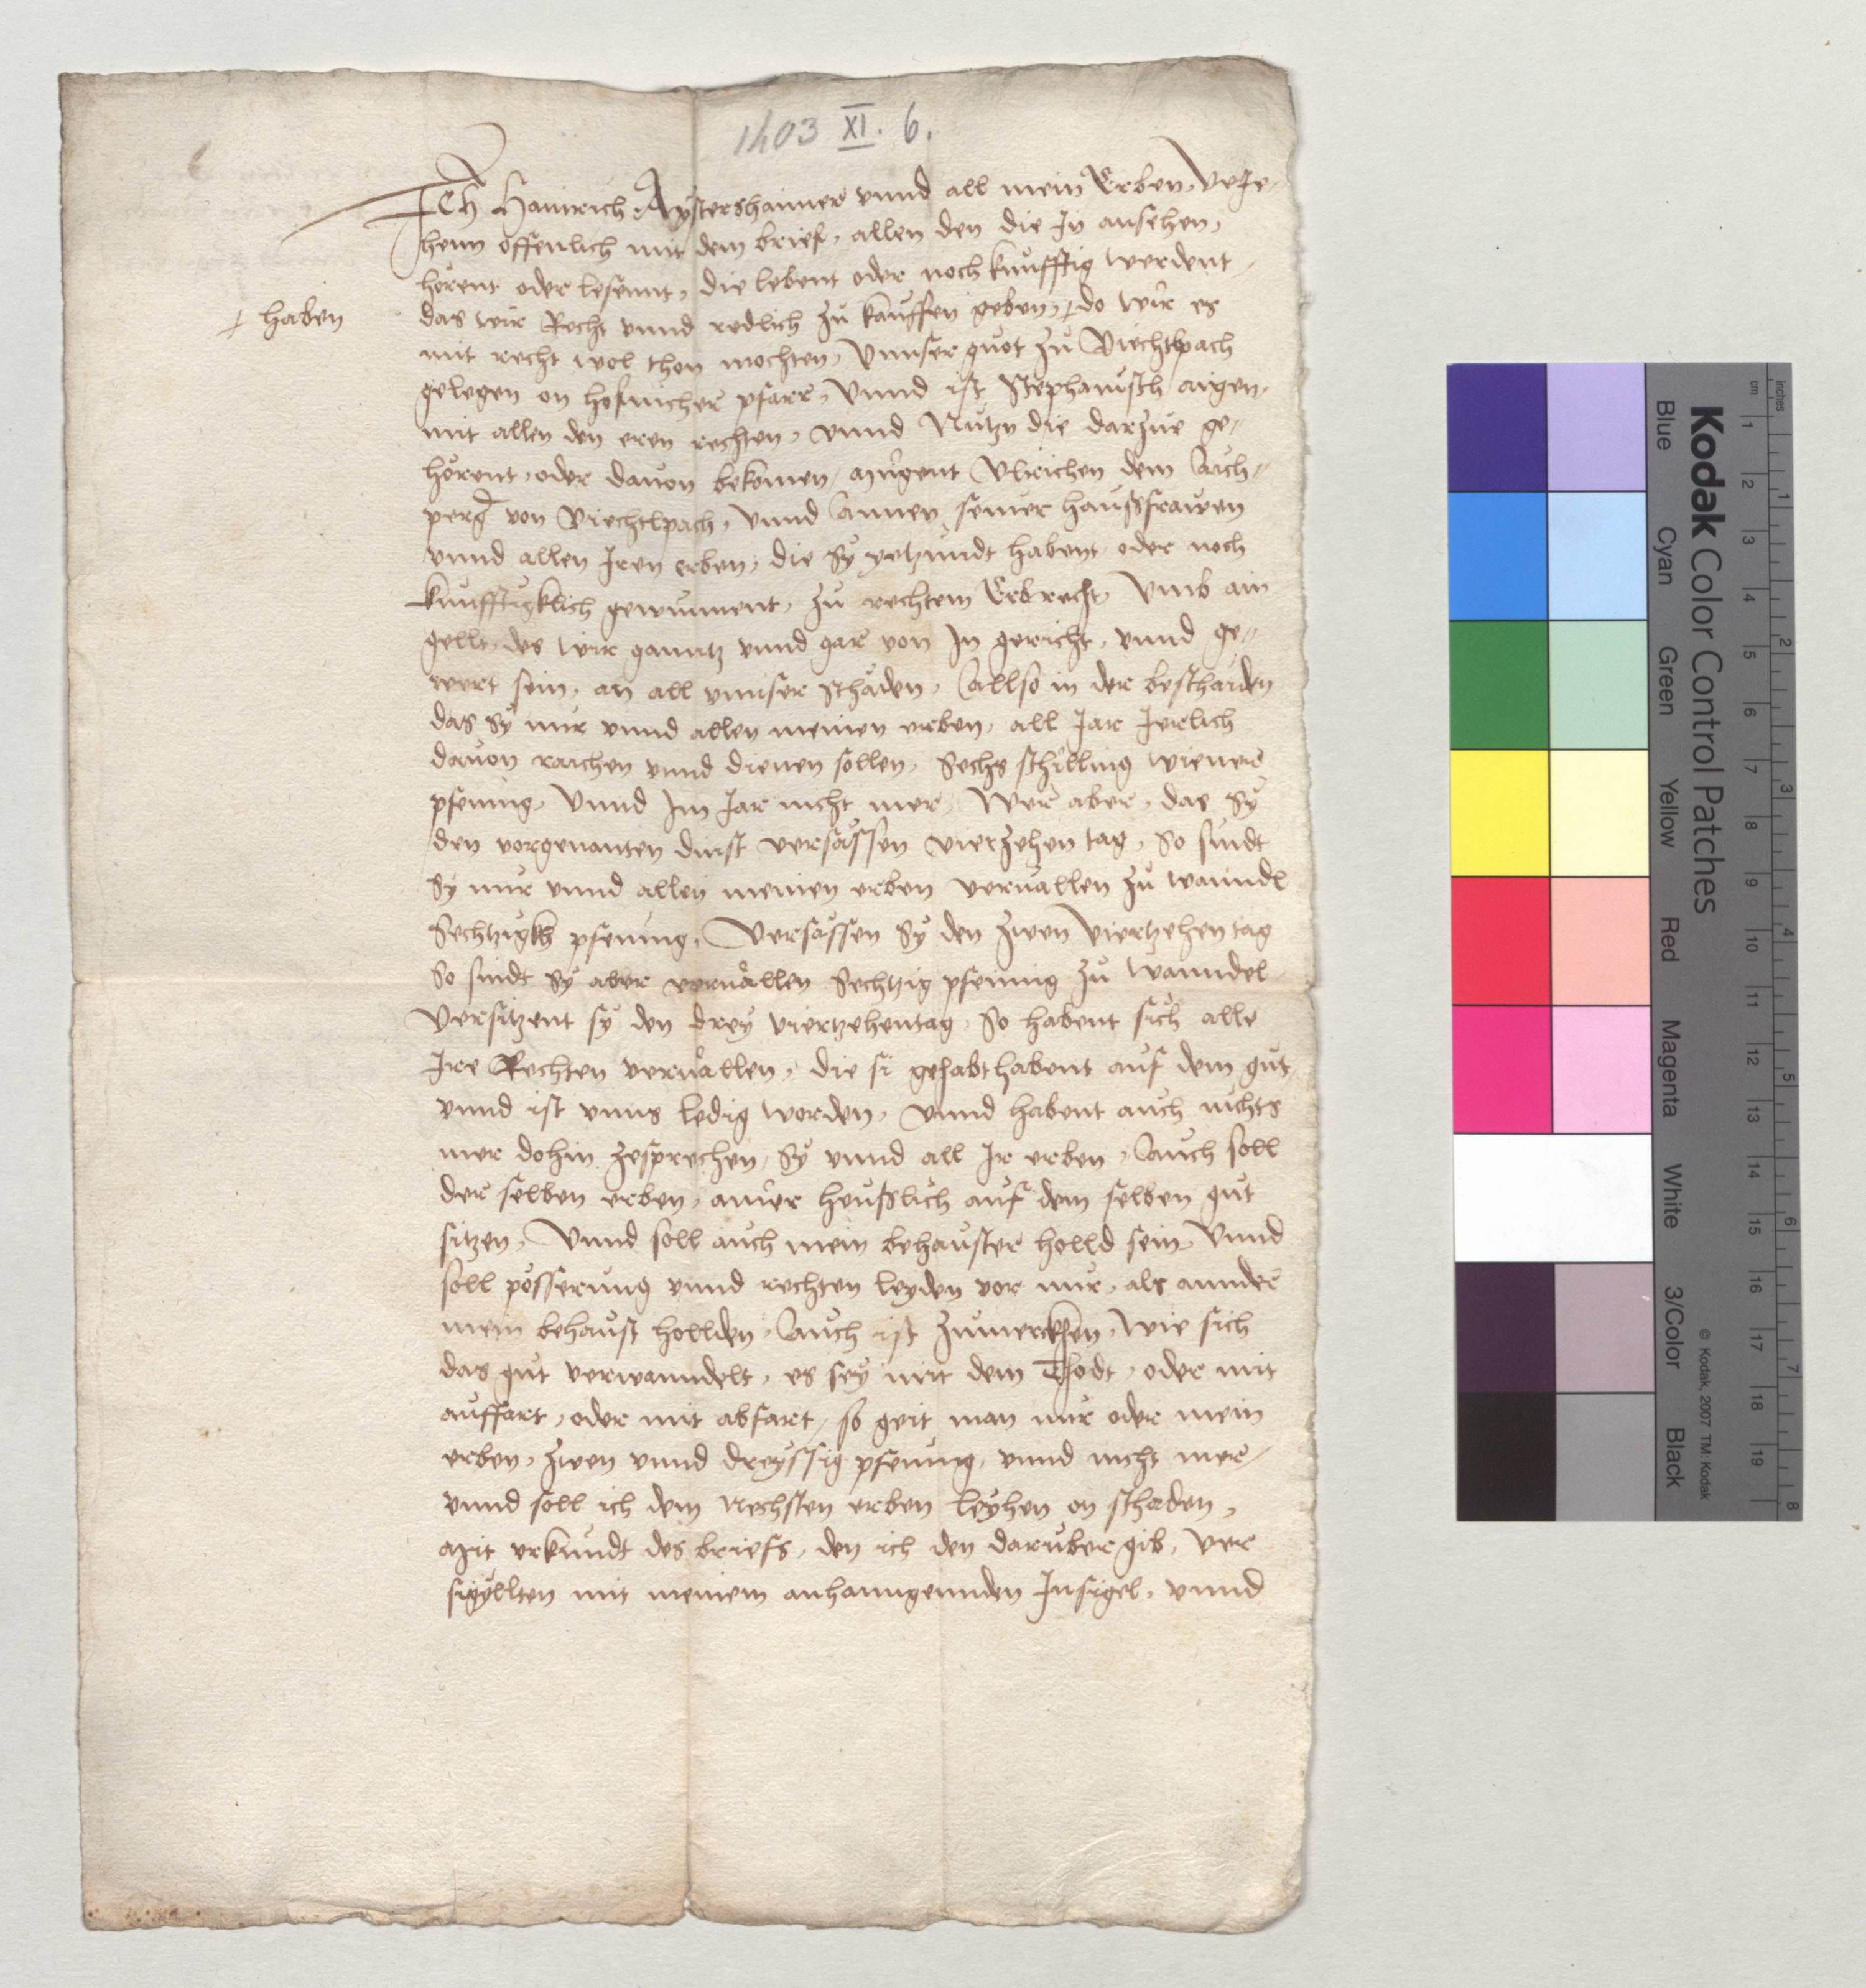 1403 XI. 6.
Ich Hainrich Aystershaimer vnnd all mein Erben, verJe-
henn offenlich mit dem brief, allen den die In ansehen,
hörent oder lesennt, die lebent oder noch kunfftig werdent,
haben
das wir Recht vnnd redlich zu kauffen geben, do wir es
mit recht wol thon mochten, Vnnser guot zu Viechtpach
gelegen on hofkircher pfarr, Vnnd ist Stephanisch aigen,
mit allen den eren rechten, vnnd Nutzn die darzue ge-
hörent, oder dauon bekomen mügent Vlrichen dem Aich-
perg von Viechtlpach, vnnd Annen seiner haußfrawen
vnnd allen Iren erben, die Sy yetzundt habent oder noch
kunfftigklich gewinnent, zu rechtem Erbrecht, Vmb ain
gellt, des wir ganntz vnnd gar von In gericht, vnnd ge-
wert sein, an all vnnser schäden, Allso in der beschaiden
das Sy mir vnnd allen meinen erben, all Jar Jerlich
dauon raichen vnnd dienen sollen, Sechs schilling wiener
pfening, Vnnd Im Jar nicht mer, Wer aber, das Sy
den vorgenanten dinst versässen vierzehen tag, So sindt
Sy mir vnnd allen meinen erben veruallen zu wanndl
Sechtzigkh pfening, Versässen Sy den zwen viertzehen tag
So sindt Sy aber veruallen Sechtzig pfening zu wanndel
Versitzent sy den drey viertzehentag, So habent sich alle
Ire Rechten veruallen, die si gehabt habent auf dem gut,
vnnd ist vnns ledig worden, vnnd habent auch nichts
mer dohin zesprechen, Sy vnnd all Ir erben, Auch soll
der selben erben, ainer heußlich auf dem selben gut
sitzen, Vnnd soll auch mein behauster holld sein, Vnnd
soll posserung vnnd rechten leyden vor mir, als annder
mein behaust hollden, Auch ist zumerckhen, Wie sich
das gut verwanndelt, es sey mit dem Thodt, oder mit
auffart, oder mit abfart, so geit man mir oder mein
erben, zwen vnnd dreyssig pfening, vnnd nicht mer,
vnnd soll ich dem Nechsten erben leyhen on schaden,
Mit vrkundt des briefs, den ich den daruber gib, ver
sigyllten mit meinem anhanngennden Insigel, vnnd
Kodak Color Control Patches
Blue Cyan Green Yellow Red Magenta White 3/Color Black
© Kodak, 2007 TM: Kodak
cm 1 2 3 4 5 6 7 8 9 10 11 12 13 14 15 16 17 18 19
inches 1 2 3 4 5 6 7 8